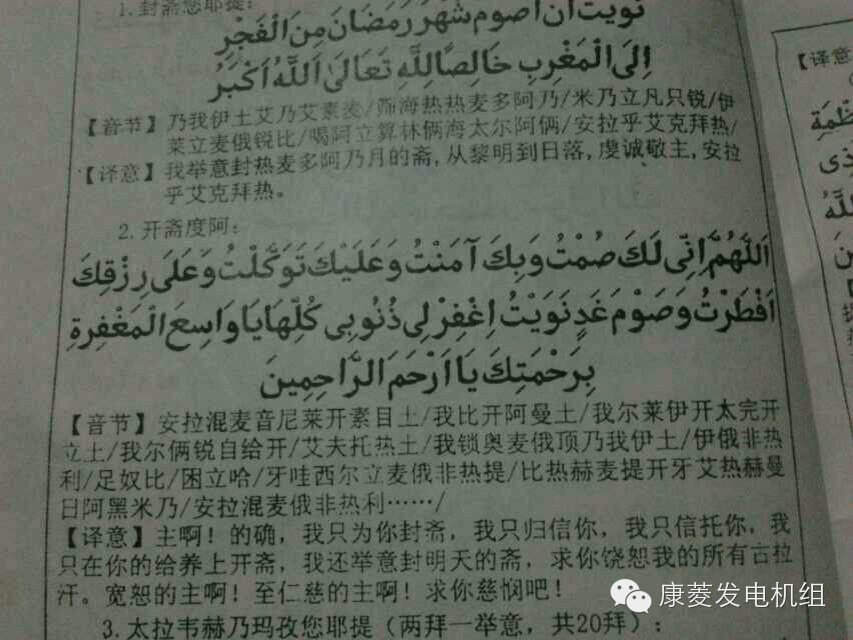 1.封斋您耶提:
نَوَيْتُ اَنْ اَصُومَ شَهْرَ رَمَضَانَ مِنَ الْفَجْرِ
اِلَى الْمَغْرِبِ خَالِصًا لِلَّهِ تَعَالَى اَللَّهُ اَكْبَرُ
【音节】乃我伊土艾乃艾素麦/筛海热热麦多阿乃/米乃立凡只锐/伊
莱立麦俄锐比/喝阿立算林俩海太尔阿俩/安拉乎艾克拜热/
【译意】我举意封热麦多阿乃月的斋,从黎明到日落,虔诚敬主,安拉
乎艾克拜热。
2.开斋度阿:
اَللَّهُمَّ اِنِّى لَكَ صُمْتُ وَبِكَ آمَنْتُ وَعَلَيْكَ تَوَكَّلْتُ وَعَلَى رِزْقِكَ
اَفْطَرْتُ وَصَوْمَ غَدٍ نَوَيْتُ اِغْفِرْلِى ذُنُوبِى كُلِّهَا يَا وَاسِعَ الْمَغْفِرَةِ
بِرَحْمَتِكَ يَا اَرْحَمَ الرَّاحِمِينَ
【音节】安拉混麦音尼莱开素目土/我比开阿曼土/我尔莱伊开太完开
立土/我尔俩锐自给开/艾夫托热土/我锁奥麦俄顶乃我伊土/伊俄非热
利/足奴比/困立哈/牙哇西尔立麦俄非热提/比热赫麦提开牙艾热赫曼
日阿黑米乃/安拉混麦俄非热利……/
【译意】主啊!的确,我只为你封斋,我只归信你,我只信托你,我
只在你的给养上开斋,我还举意封明天的斋,求你饶恕我的所有古拉
汗。宽恕的主啊!至仁慈的主啊!求你慈悯吧!
3.太拉韦赫乃玛孜您耶提(两拜一举意,共20拜):
【译意
康菱发电机组